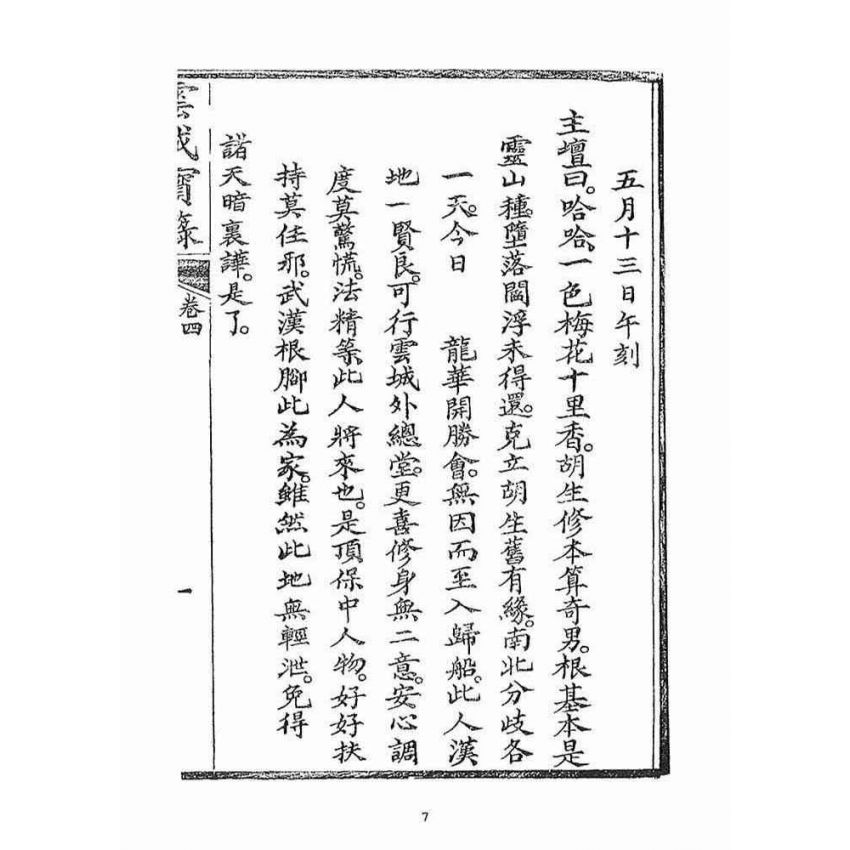 五月十三日午刻
主壇曰。哈哈。一色梅花十里香。胡生修本算奇男。根基本是
靈山種。墮落閻浮未得還。克立胡生舊有緣。南北分歧各
一天。今日　龍華開勝會。無因而至入歸船。此人漢
地一賢良。可行雲城外總堂。更喜修身無二意。安心調
度莫驚慌。法精等。此人將來也。是頂保中人物。好好扶
持莫任邪。武漢根腳此為家。雖然此地無輕泄。免得
諸天暗裏譁。是了。
雲城寶籙
卷四
一
7